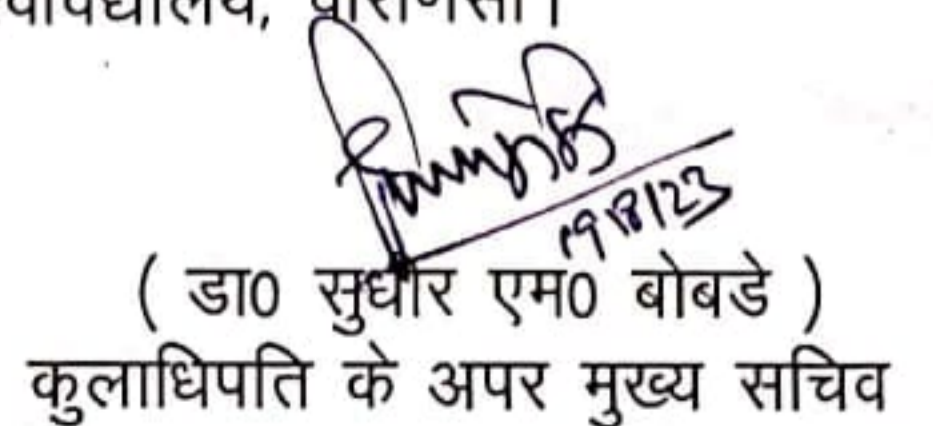 वाराणसी।
19/8/23
( डा0 सुधीर एम0 बोबडे )
कुलाधिपति के अपर मुख्य सचिव